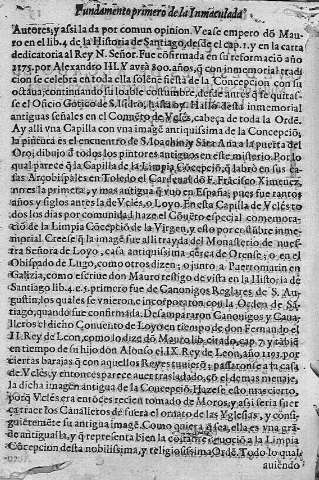 Fundamento primero de la Inmaculada
Autores, y assi la da por comun opinion. Vease empero dõ Mau
ro en el lib. 4. de la Historia de Santiago, desde el cap. 1. y en la carta
dedicatoria al Rey N. Señor. Fue cõfirmada en su reformaciõ año
1175. por Alexandro III. Y avrà 800. años, q̃ con inmemorial tradi
ciõ se celebra en toda ella solene fiesta de la Concepciõ, con su
octava, continuando su loable costumbre, desde antes q̃ se quitas-
se el Oficio Gotico de S. Isidro, hasta oy. Hallo desta inmemorial
antiguas señales en el Comuẽto de Velès, cabeça de toda la Ordẽ.
Ay alli vna Capilla con vna imagẽ antiquissima de la Concepciõ,
la pintura es el encuentro de S. Ioachin, y Sãta Ana a la puerta del
Oro; dibujo d todos los pintores antiguos en este misterio. Por lo
qual parece q̃ la Capilla de la Limpia Cõcepciõ, q̃ labrò en sus ca
sas Arçobispales en Toledo el Cardenal dõ F. Frãcisco Ximenez,
no res la primera, y mas antigua q̃ vuo en España; pues fue tantos
años, y siglos antes la de Velès, o Loyo. En esta Capilla de Velès to
dos los dias por comunidad haze el Cõuẽto especial comemora-
ciõ de la Limpia Cõcepciõ de la Virgen, y esto por costũbre inme-
morial. Creese q̃ la imagẽ fue alli trayda del Monasterio de nues-
tra Señora de Loyo, casa antiquissima cerca de Orense; o en el
Obispado de Lugo, como otros dizen; o junto a Puertomarin en
Galizia, como escriue don Mauro testigo de vista en la Historia de
Santiago lib. 4. c. 5. primero fue de Canonigos Reglares de S. Au-
gustin, los quales se vnieron, e incorporaron con la Orden de Sã-
tiago, quando fue confirmada. Desampararon Canonigos y Caua
lleros el dicho Conuento de Loyo en tiempo de don Fernando el
II. Rey de Leon, como lo dize dõ Mauro lib. citado, cap. 7. y tãbiẽ
en tiempo de su hijo dõn Alonso el IX. Rey de Leon, año 1193. por
ciertas barajas q̃ con aquellos Reyes tuuierõ; passarõse a la casa
de Velès, y entonces parece auer trasladado, cõ el demas menaje,
la dicha imagen antigua de la Concepciõ. Hazese esto mas cierto,
porq̃ Velès era entõces recien tomado de Moros, y assi seria fuer
ça traer los Caualleros de fuera el ornato de las Yglesias, y consi-
guiẽtemẽte su antigua imagẽ. Como quiera q̃ sea, ella es vna grã-
de antigualla, y q̃ representa bien la costãte deuociõ a la Limpia
Cõcepcion desta nobilissima, y religiosissima Ordẽ. Todo lo qual
auiendo